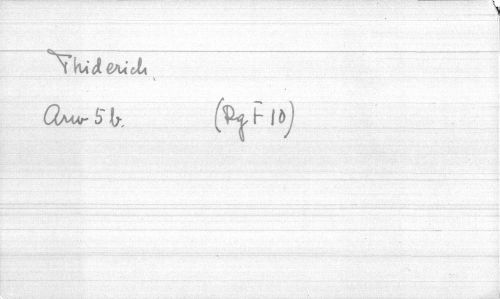 Thiderich.
Arw 5 b. (Rg F 10)